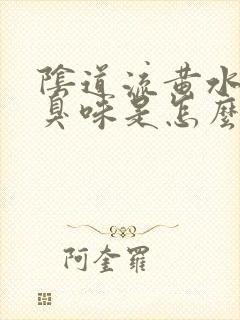 陰道流黃水
臭味是怎麼
阿奎羅